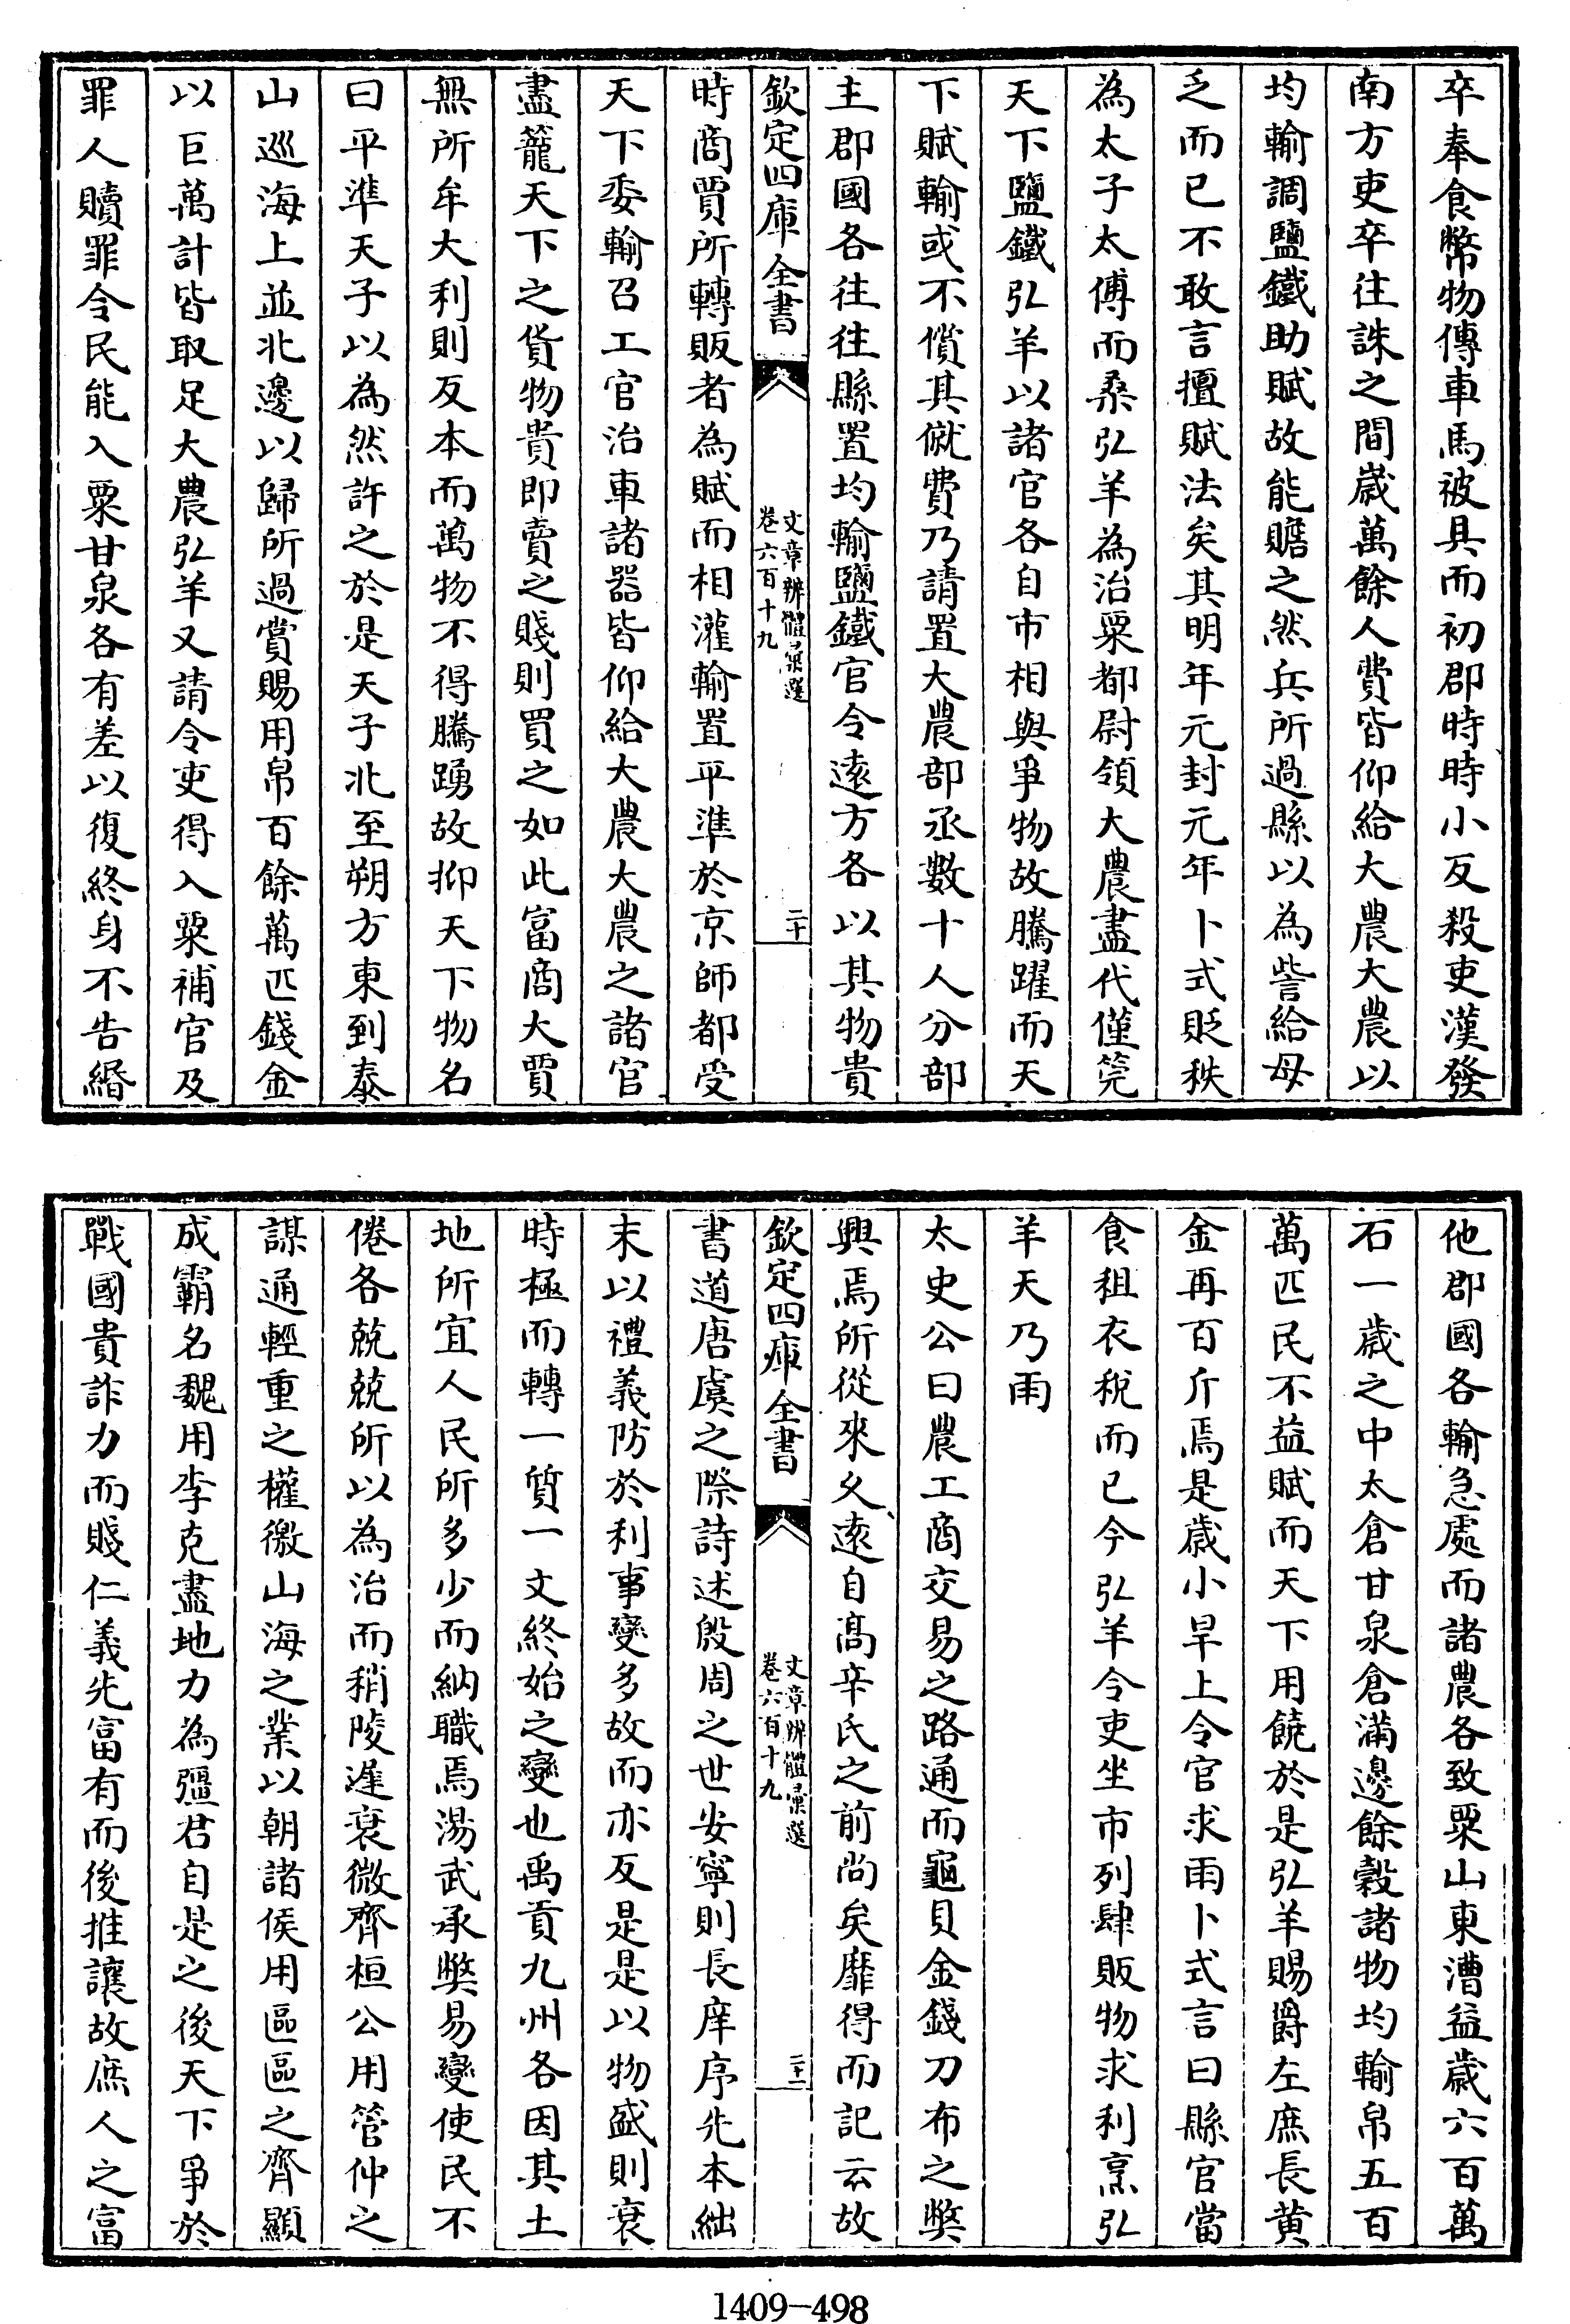 卒奉食幣物傳車馬被具而初郡時時小反殺吏漢發
南方吏卒往誅之間歲萬餘人費皆仰給大農大農以
均輸調鹽鐵助賦故能贍之然兵所過縣以為訾給毋
乏而已不敢言擅賦法矣其明年元封元年卜式貶秩
為太子太傅而桑弘羊為治粟都尉領大農盡代僅筦
天下鹽鐵弘羊以諸官各自市相與爭物故騰躍而天
下賦輸或不償其僦費乃請置大農部丞數十人分部
主郡國各往往縣置均輸鹽鐵官令遠方各以其物貴
欽定四庫全書
文章辨體彙選
卷六百十九
二十
時商賈所轉販者為賦而相灌輸置平準於京師都受
天下委輸召工官治車諸器皆仰給大農大農之諸官
盡籠天下之貨物貴即賣之賤則買之如此富商大賈
無所牟大利則反本而萬物不得騰踴故抑天下物名
曰平準天子以為然許之於是天子北至朔方東到泰
山巡海上並北邊以歸所過賞賜用帛百餘萬匹錢金
以巨萬計皆取足大農弘羊又請令吏得入粟補官及
罪人贖罪令民能入粟甘泉各有差以復終身不告緡
他郡國各輸急處而諸農各致粟山東漕益歲六百萬
石一歲之中太倉甘泉倉滿邊餘穀諸物均輸帛五百
萬匹民不益賦而天下用饒於是弘羊賜爵左庶長黄
金再百斤焉是歲小旱上令官求雨卜式言曰縣官當
食租衣稅而已今弘羊令吏坐市列肆販物求利烹弘
羊天乃雨
太史公曰農工商交易之路通而龜貝金錢刀布之獘
興焉所從來久遠自髙辛氏之前尚矣靡得而記云故
欽定四庫全書
文章辨體彙選
卷六百十九
二十一
書道唐虞之際詩述殷周之世安寧則長庠序先本絀
末以禮義防於利事變多故而亦反是是以物盛則衰
時極而轉一質一文終始之變也禹貢九州各因其土
地所宜人民所多少而納職焉湯武承獘易變使民不
倦各兢兢所以為治而稍陵遲衰微齊桓公用管仲之
謀通輕重之權徼山海之業以朝諸侯用區區之齊顯
成霸名魏用李克盡地力為彊君自是之後天下爭於
戰國貴詐力而賤仁義先富有而後推讓故庶人之富
1409-498